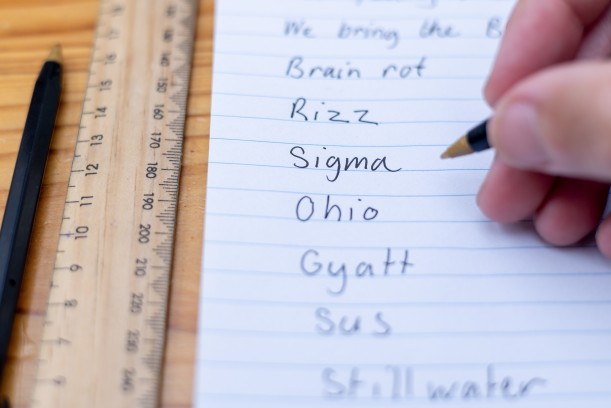 We bring the B
Brain rot
Rizz
Sigma
Ohio
Gyatt
Sus
Still water
16
15
14
13
12
11
10
9
8
7
6
150
160
170
180
190
200
210
220
230
240